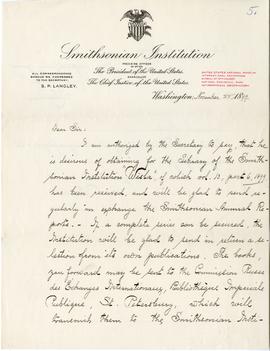 5.
Smithsonian Institution
PRESIDING OFFICER
EX OFFICIO
The President of the United States.
CHANCELLOR
The Chief Justice of the United States.
ALL CORRESPONDENCE
SHOULD BE ADDRESSED
TO THE SECRETARY,
S. P. LANGLEY.
UNITED STATES NATIONAL MUSEUM
INTERNATIONAL EXCHANGES
BUREAU OF ETHNOLOGY
NATIONAL ZOOLOGICAL PARK
ASTROPHYSICAL OBSERVATORY
Washington, November 1899
Dear Sir:
I am authorized by the Secretary to say, that he
is desirous of obtaining for the Library of the Smith-
sonian Institution of which vol. 13, part 6, 1899
has been received, and will be glad to send reg-
ularly in exchange the Smithsonian Annual Re-
ports. - If a complete series can be secured, the
Institution will be glad to send in return a se-
lection from its own publications. The books,
you forward may be sent to the Commission Russe
des Echanges Internationaux, Bibliothèque Impériale
Publique, St. Petersburg, which will
transmit them to the Smithsonian Insti-